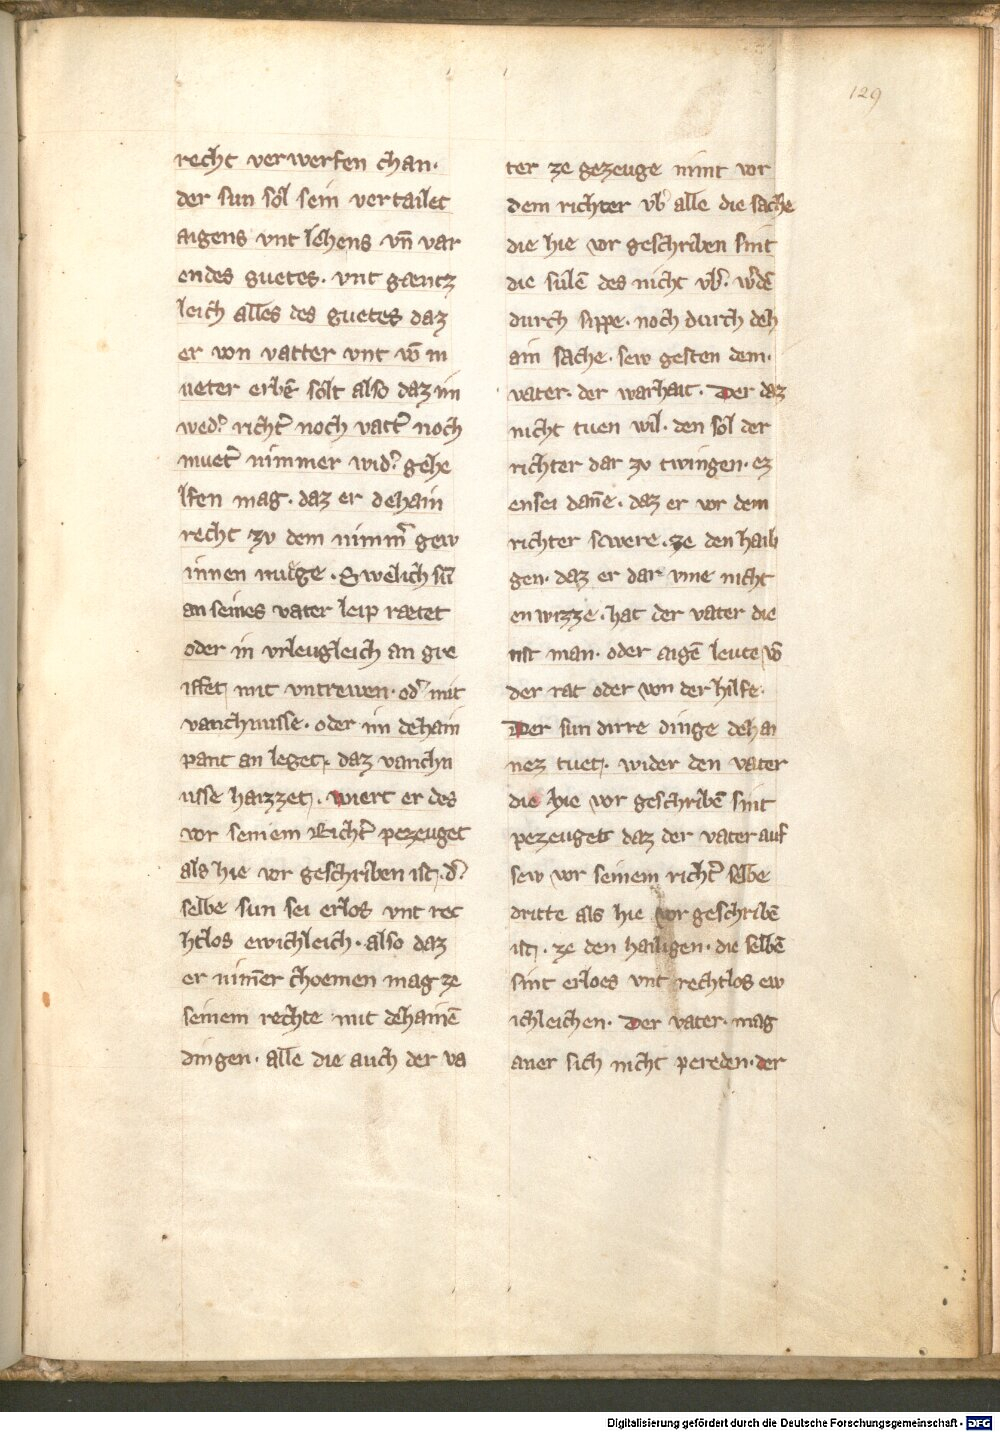 129
recht verwerfen chan·
der sun sol sein vertailet
aigens vnt lehens vn̄ var
endes guetes· vnt gæntz
leich alles des guetes daz
er von vatter vnt vō m
ueter erbē solt also daz im
wed᷑ richt᷑ noch vatt᷑ noch
muet᷑ nimmer wid᷑ gehe
lfen mag· daz er dehain
recht zv dem nimm᷑ gew
innen muge· Swelich sū
an seines vater leip rætet
oder in vrleugleich an gre
iffet mit vntrewen· od᷑ mit
vanchnusse· oder im dehain
pant an leget· daz vanchn
usse haizzet· wiert er des
vor seinem Richt᷑ pezeuget
als hie vor geschriben ist· d᷑
selbe sun sei erlos vnt rec
htlos ewichleich· also daz
er nim̄er choemen mag ze
seinem rechte mit dehainē
dingen· alle die auch der va
ter ze gezeuge nimt vor
dem richter vb᷑ alle die sache
die hie vor geschriben sint
die sulē des nicht vb᷑· w᷑dē
durch sippe· noch durch deh
ain sache· sew gesten dem·
vater· der warhait· Der daz
nicht tuen wil· den sol der
richter dar zv twingen· ez
ensei dan̄e· daz er vor dem
richter swere· ze den haili
gen· daz er dar vme nicht
enwizze· hat der vater die
nst man· oder aigē leute vō
der rat oder von der hilfe·
Der sun dirre dinge dehai
nez tuet· wider den vater
die hie vor geschribē sint
pezeuget daz der vater auf
sew vor seinem richt᷑ selbe
dritte als hie vor geschribē
ist· ze den hailigen· die selbē
sint erloes vnt rechtlos ew
ichleichen· Der vater· mag
auer sich nicht pereden· der
Digitalisierung gefördert durch die Deutsche Forschungsgemeinschaft - DFG